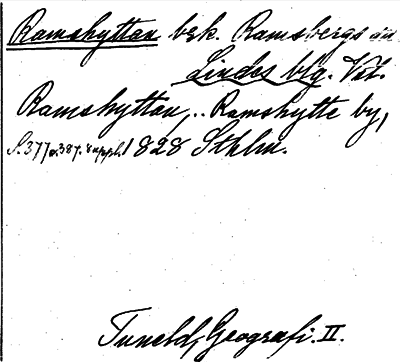 Ramshyttan brk. Ramsbergs
Lindes blg. Vstl.
Ramshyttan, .. Ramshytte by,
S. 377 o. 387. suppl. 1828 Sthlm.
Tuneld, Geografi. II.